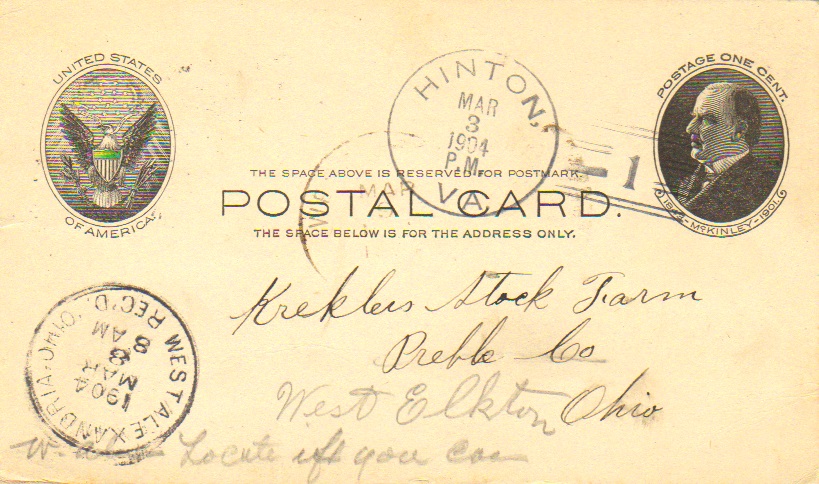 UNITED STATES
OF AMERICA.
HINTON,
MAR
3
1904
P.M.
VA.
1
POSTAGE ONE CENT.
1843-McKINLEY-1901.
THE SPACE ABOVE IS RESERVED FOR POSTMARK.
POSTAL CARD.
THE SPACE BELOW IS FOR THE ADDRESS ONLY.
MAR
Kreklers Stock Farm
Preble Co
West Elkton Ohio
WEST ALEXANDRIA, OHIO.
REC'D.
1904
MAR
8
8
AM
Locate if you can